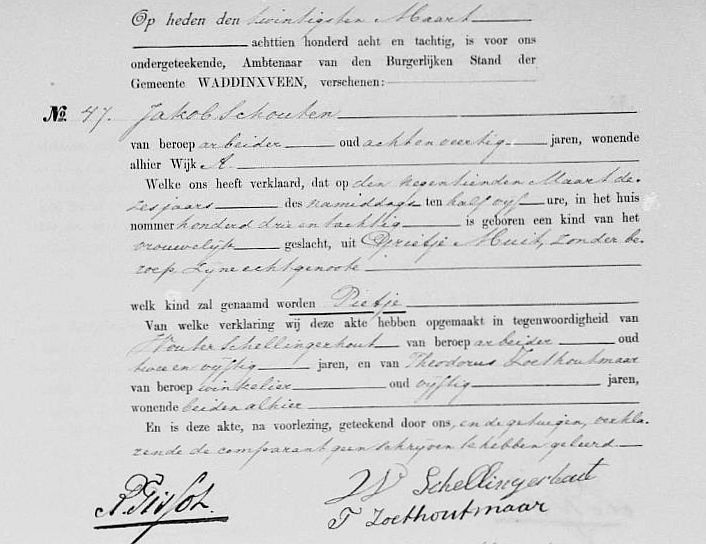 Op heden den twintigsten Maart
achttien honderd acht en tachtig, is voor ons
ondergeteekende, Ambtenaar van den Burgerlijken Stand der
Gemeente WADDINXVEEN, verschenen:
No. 47. Jakob Schouten
van beroep arbeider oud achtenveertig jaren, wonende
alhier Wijk A.
Welke ons heeft verklaard, dat op den negentienden Maart de-
zes jaars des namiddags ten half vijf ure, in het huis
nommer honderd drie en tachtig is geboren een kind van het
vrouwelijk geslacht, uit Pietje Muit, zonder be-
roep zijne echtgenoote
welk kind zal genaamd worden Pietje
Van welke verklaring wij deze akte hebben opgemaakt in tegenwoordigheid van
Wouter Schellingerhout van beroep arbeider oud
twee en vijftig jaren, en van Theodorus Zoethoutmaar
van beroep winkelier oud vijftig jaren,
wonende beiden alhier
En is deze akte, na voorlezing, geteekend door ons, en de getuigen, verkla-
rende de comparant geen schrijven te hebben geleerd
W Schellingerhout
T Zoethoutmaar